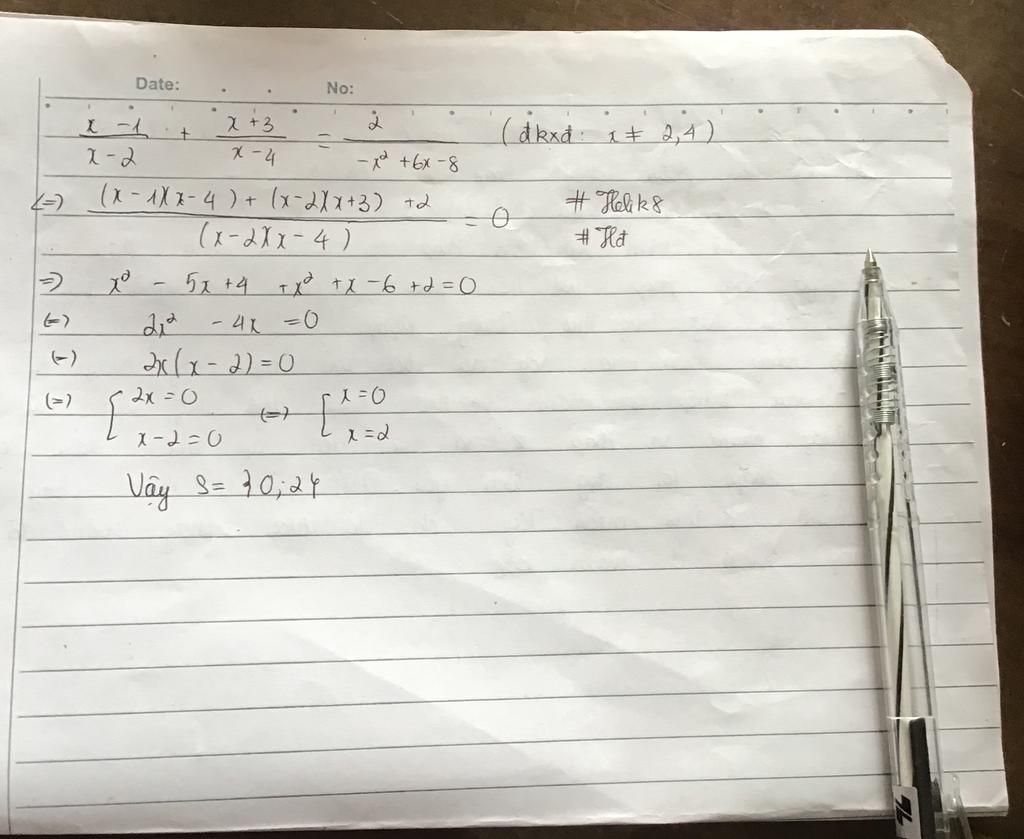 Date: No:
x - 1 / x - 2 + x + 3 / x - 4 = 2 / -x² + 6x - 8 (đkxđ: x ≠ 2,4)
<=> (x - 1)(x - 4) + (x - 2)(x + 3) + 2 / (x - 2)(x - 4) = 0 # Helik8
# Hđ
=> x² - 5x + 4 + x² + x - 6 + 2 = 0
(=) 2x² - 4x = 0
(-) 2x(x - 2) = 0
(=) [ 2x = 0 (=) [ x = 0
x - 2 = 0 x = 2
Vậy S = {0; 2}